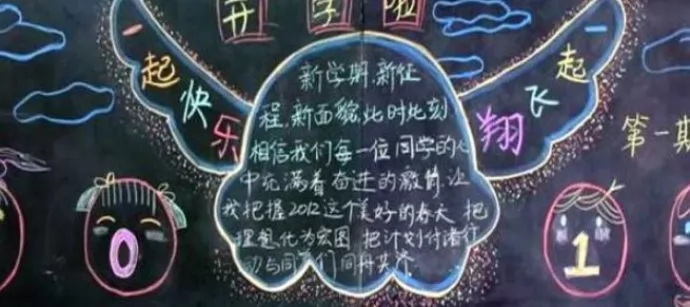 开学啦
一起快乐
一起飞翔
第一期
新学期,新征
程,新面貌,此时此刻,
相信我们每一位同学的心
中充满着奋进的激情,让
我把握2012这个美好的春天,把
理想化为宏图,把计划付诸行
动与同学们同舟共济
0
1